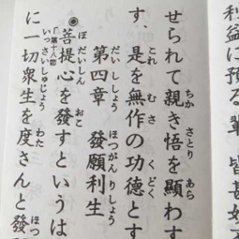 利益に預る輩皆甚好
せられて親き悟を顯わす
す、是を無作の功德とす
第四章　發願利生
◉菩提心を發すというは
「第十八節」
に一切衆生を度さんと發